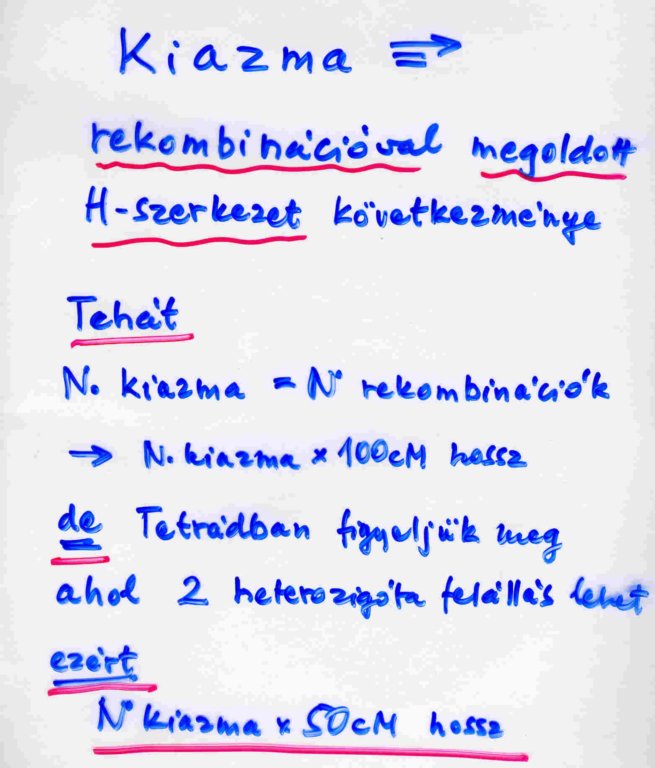 Kiazma ⇒
rekombinációval megoldott
H-szerkezet következménye
Tehát
N. kiazma = N° rekombinációk
→ N. kiazma × 100cM hossz
de Tetrádban figyeljük meg
ahol 2 heterozigóta felállás lehet
ezért
N° kiazma × 50cM hossz